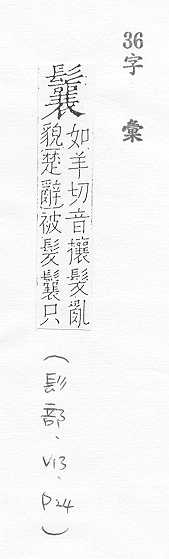 36字彙
鬤
如羊切音攘髮亂
貌楚辭被髮鬤只
（髟部、V13、P24）